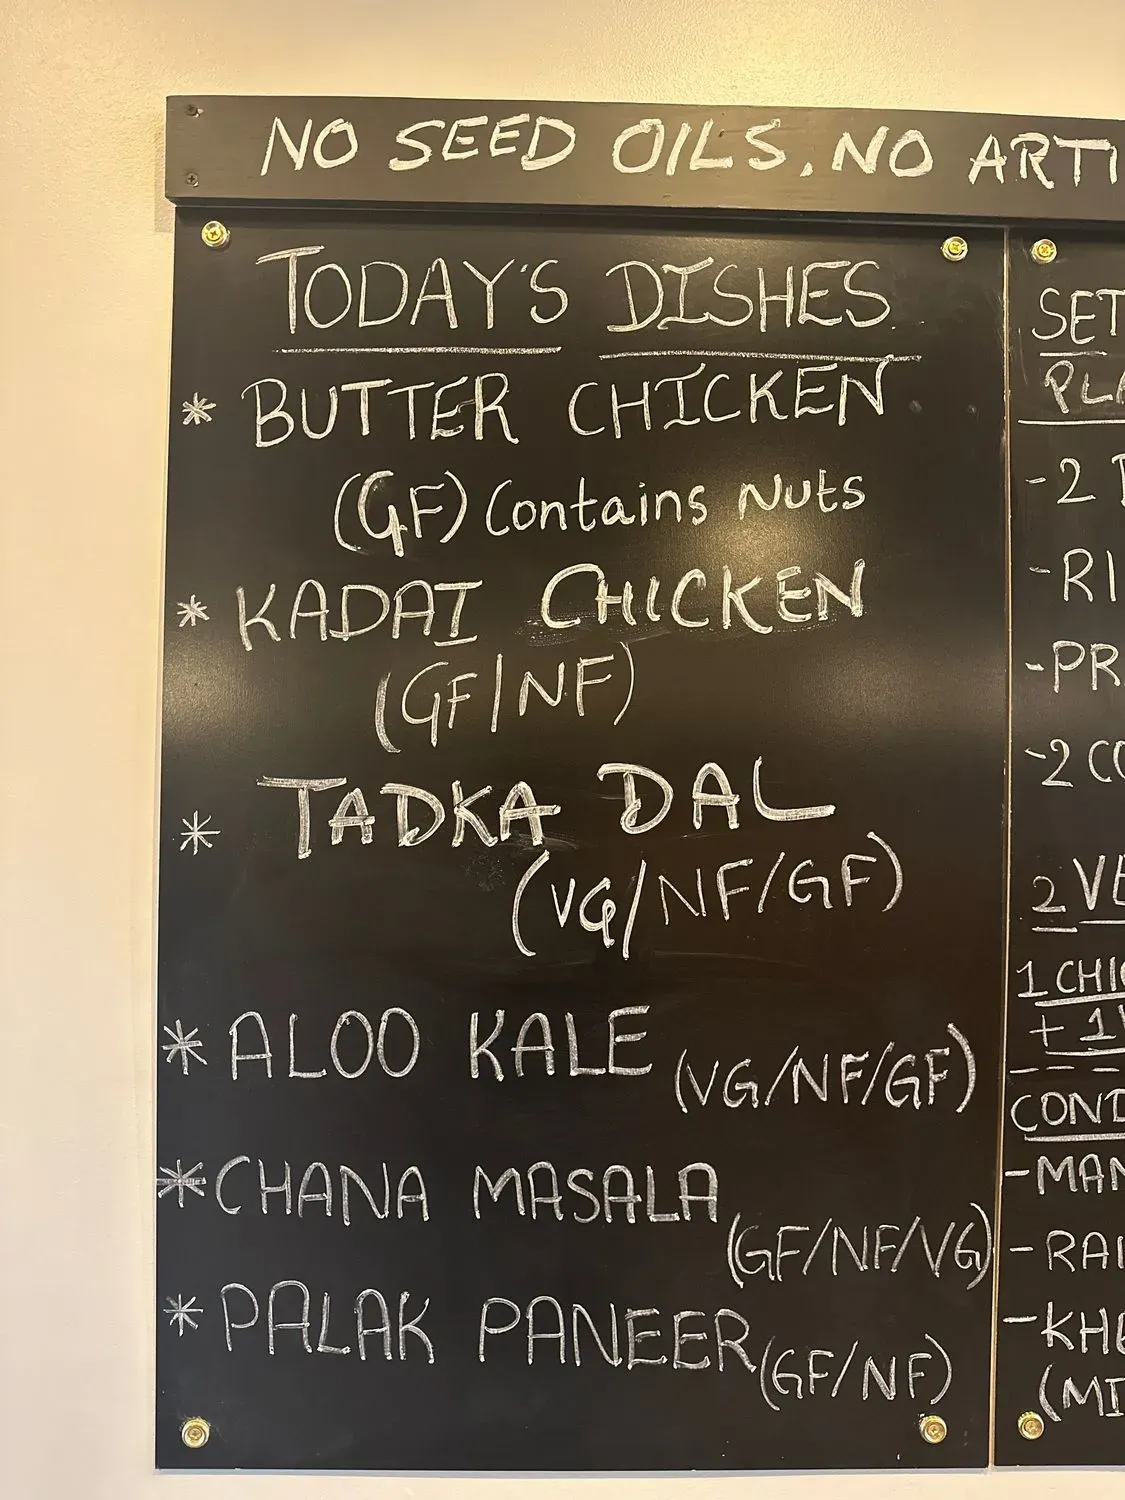 NO SEED OILS, NO ARTI
TODAY'S DISHES
* BUTTER CHICKEN
(GF) Contains Nuts
* KADAI CHICKEN
(GF/NF)
* TADKA DAL
(VG/NF/GF)
* ALOO KALE (VG/NF/GF)
* CHANA MASALA
(GF/NF/VG)
* PALAK PANEER (GF/NF)
SET
PLA
-2
-RI
-PR
-2 CO
2 VE
1 CHIC
+ 1
COND
-MAN
-RAI
-KHE
(MI